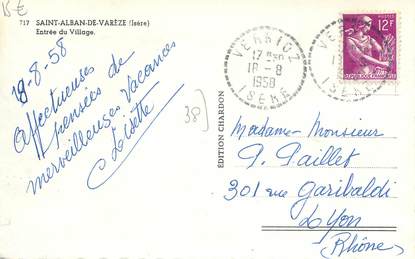 15 €
717 SAINT-ALBAN-DE-VARÈZE (Isère)
Entrée du Village.
19-8-58
Affectueuses
pensées de
merveilleuses vacances
Lisette
38
ÉDITION CHARDON
VERNIOZ
18-8
1958
ISERE
12F
Madame-Monsieur
P. Paillet
301 rue Garibaldi
Lyon
(Rhône)